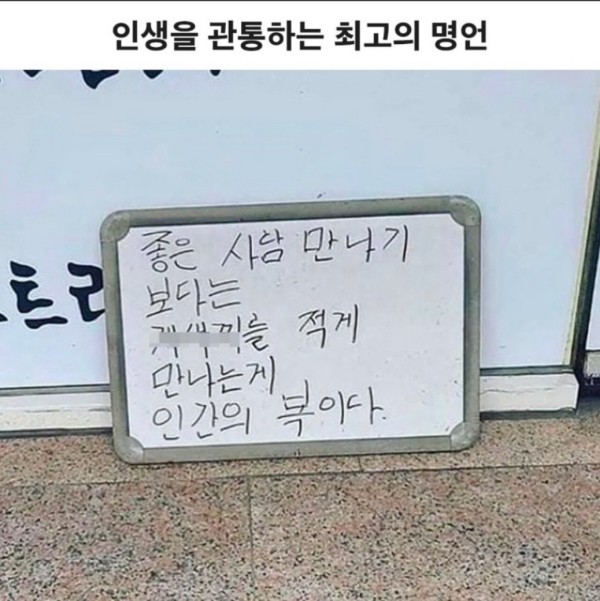 인생을 관통하는 최고의 명언
트리
좋은 사람 만나기
보다는
개색끼를 적게
만나는게
인간의 복이다.